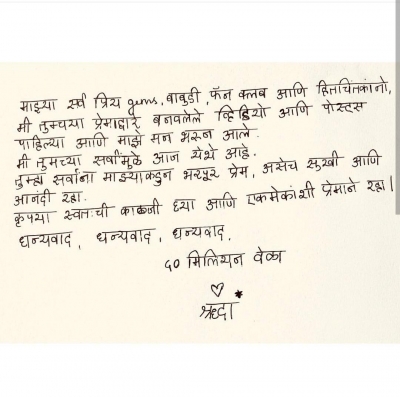 माझ्या सर्व प्रिय gems, बाबुडी, फॅन क्लब आणि हितचिंतकांनो,
मी तुमच्या प्रेमाद्वारे बनवलेले व्हिडियो आणि पोस्टस
पाहिल्या आणि माझे मन भरून आले.
मी तुमच्या सर्वांमुळे आज येथे आहे.
तुम्हा सर्वांना माझ्याकडून भरपूर प्रेम, असेच सुखी आणि
आनंदी रहा.
कृपया स्वतःची काळजी घ्या आणि एकमेकांशी प्रेमाने रहा।
धन्यवाद, धन्यवाद, धन्यवाद.
५० मिलियन वेळा
श्रद्धा